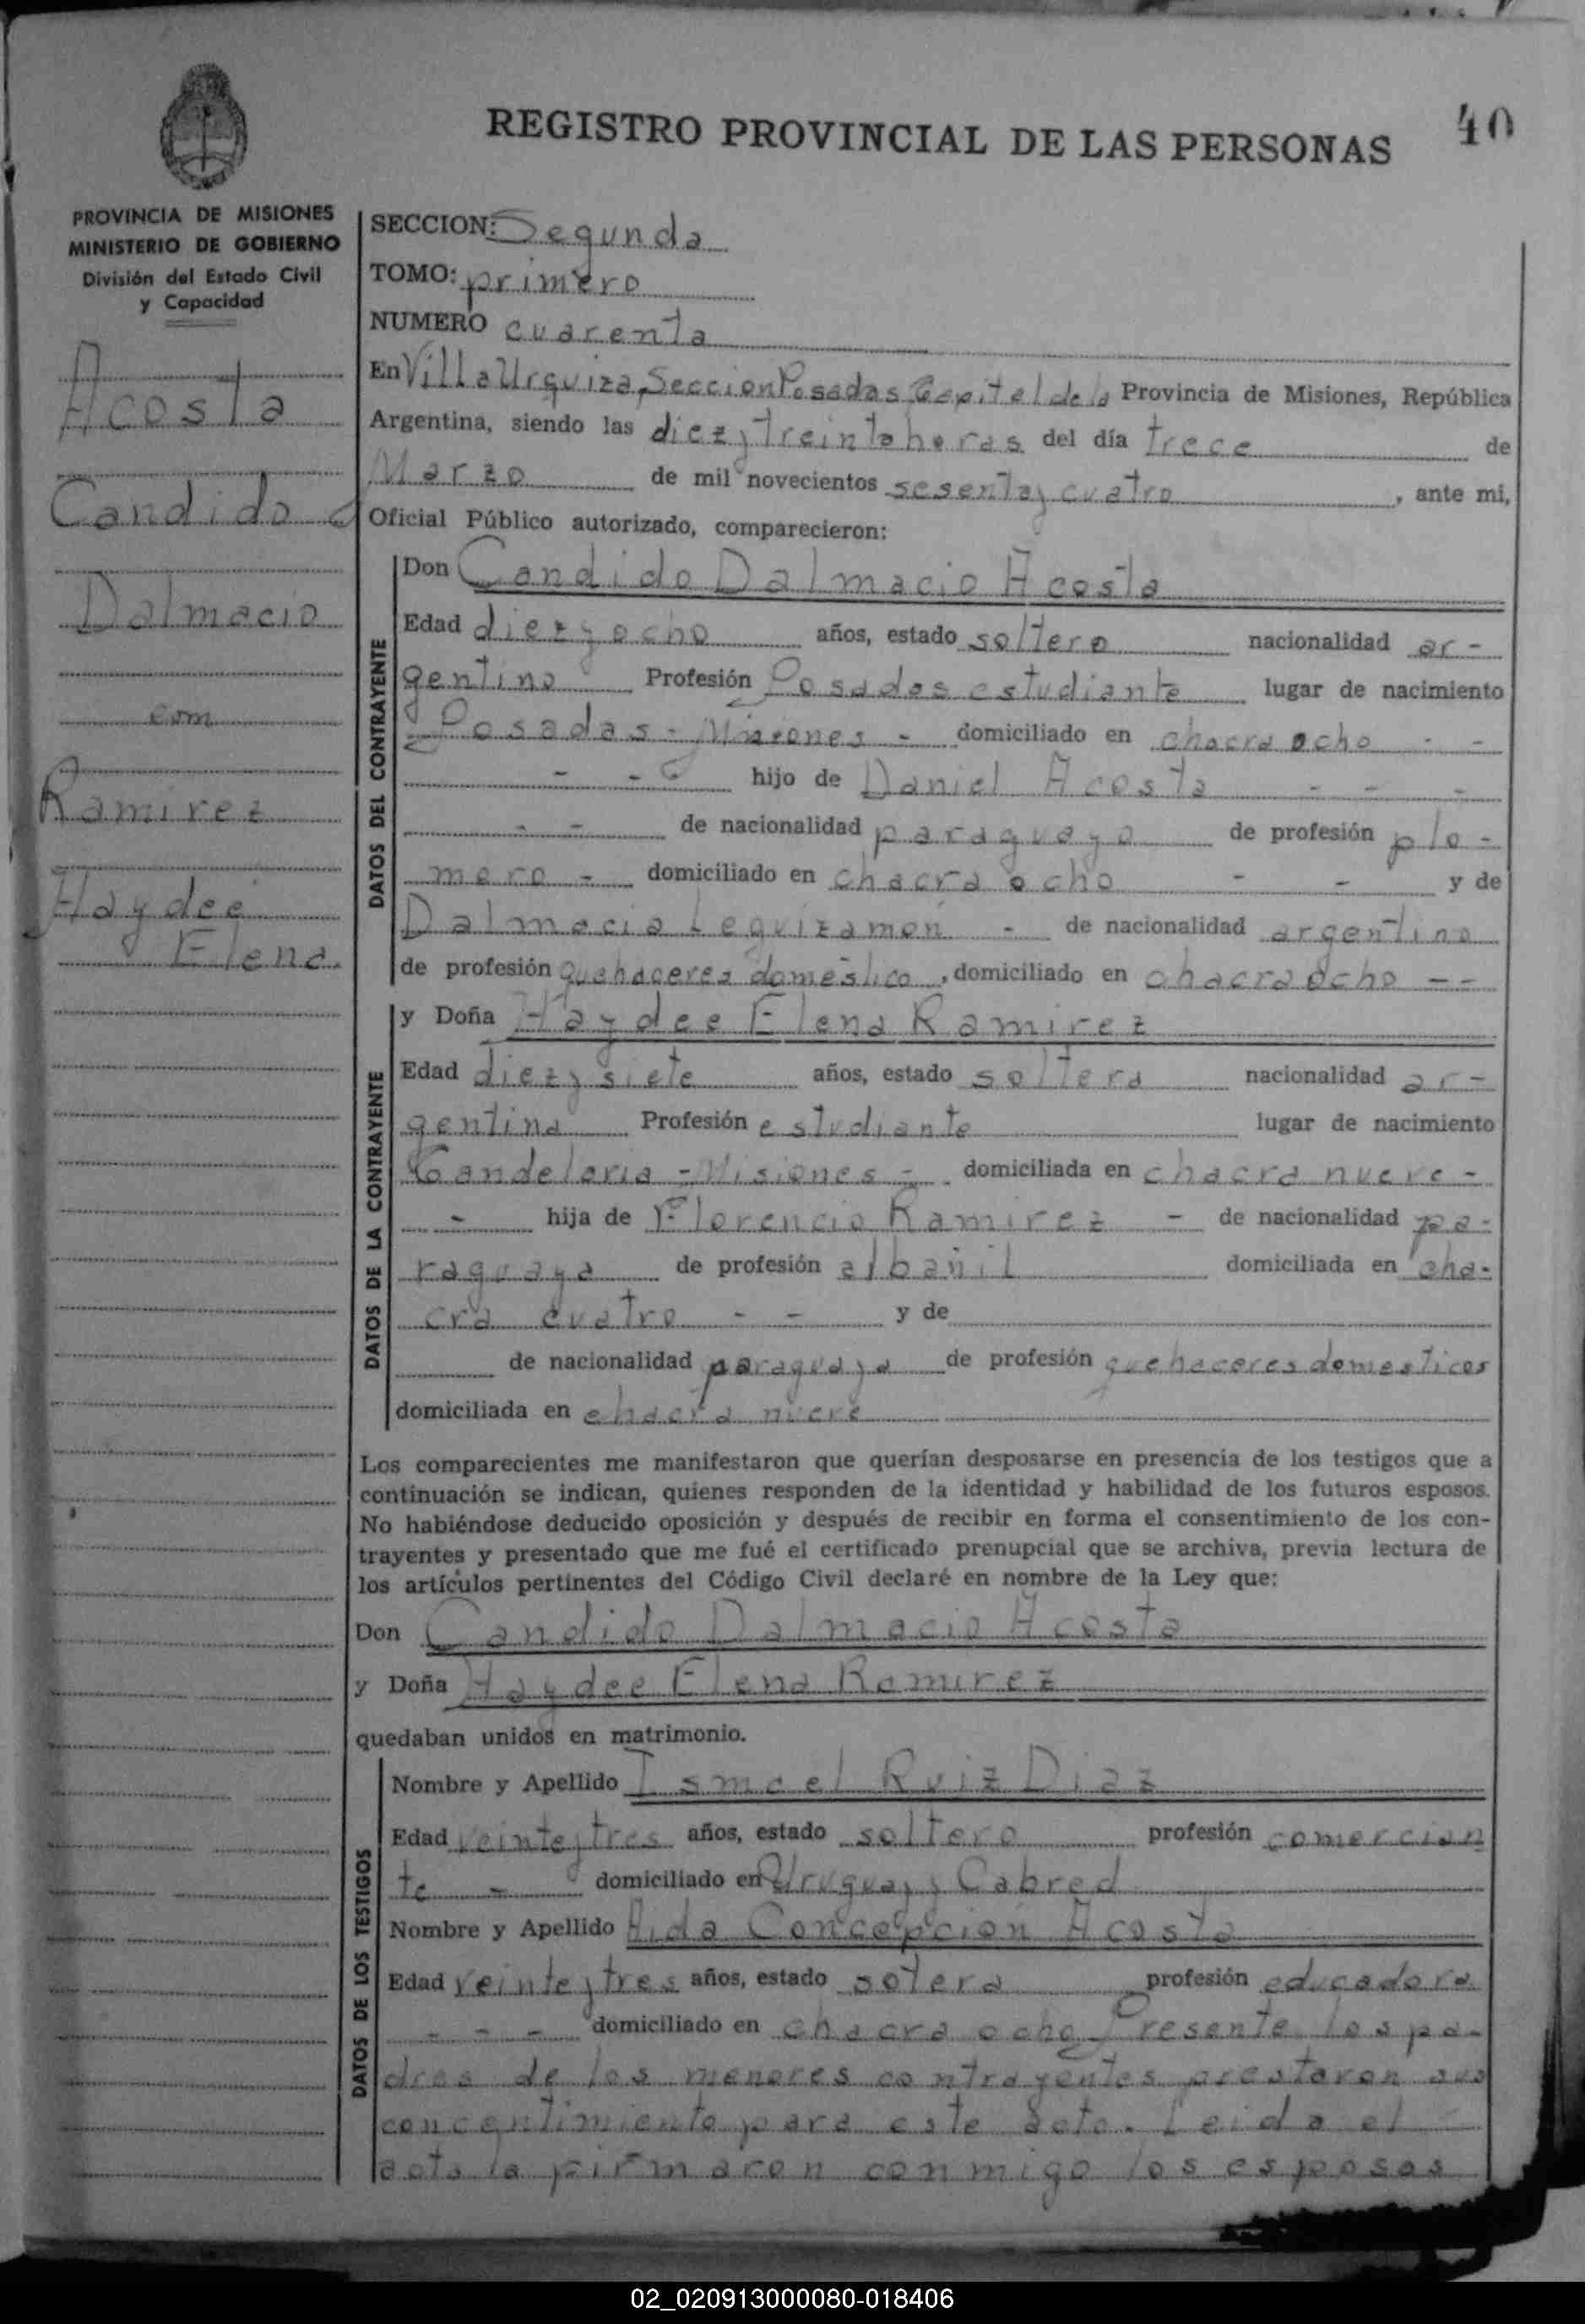 REGISTRO PROVINCIAL DE LAS PERSONAS
40
PROVINCIA DE MISIONES
MINISTERIO DE GOBIERNO
División del Estado Civil
y Capacidad
Acosta
Candido
Dalmacio
con
Ramirez
Haydee
Elena
SECCION: Segunda
TOMO: primero
NUMERO cuarenta
En Villa Urquiza, Seccion Posadas Capital de la Provincia de Misiones, República
Argentina, siendo las diez y treinta horas del día trece de
Marzo de mil novecientos sesenta y cuatro, ante mi,
Oficial Público autorizado, comparecieron:
DATOS DEL CONTRAYENTE
Don Candido Dalmacio Acosta
Edad diez y ocho años, estado soltero nacionalidad ar-
gentino Profesión Posadas estudiante lugar de nacimiento
Posadas - Misiones - domiciliado en chacra ocho - -
- - hijo de Daniel Acosta - - -
- - de nacionalidad paraguayo de profesión plo-
mero - domiciliado en chacra ocho - - y de
Dalmacia Leguizamon - de nacionalidad argentino
de profesión quehaceres domestico, domiciliado en chacra ocho --
DATOS DE LA CONTRAYENTE
y Doña Haydee Elena Ramirez
Edad diez y siete años, estado soltera nacionalidad ar-
gentina Profesión estudiante lugar de nacimiento
Candelaria - Misiones - domiciliada en chacra nueve -
- hija de Florencio Ramirez - de nacionalidad pa-
raguaya de profesión albañil domiciliada en cha-
cra cuatro - - y de
de nacionalidad paraguaya de profesión quehaceres domesticos
domiciliada en chacra nueve
Los comparecientes me manifestaron que querían desposarse en presencia de los testigos que a
continuación se indican, quienes responden de la identidad y habilidad de los futuros esposos.
No habiéndose deducido oposición y después de recibir en forma el consentimiento de los con-
trayentes y presentado que me fué el certificado prenupcial que se archiva, previa lectura de
los artículos pertinentes del Código Civil declaré en nombre de la Ley que:
Don Candido Dalmacio Acosta
y Doña Haydee Elena Ramirez
quedaban unidos en matrimonio.
DATOS DE LOS TESTIGOS
Nombre y Apellido Ismael Ruiz Diaz
Edad veinte y tres años, estado soltero profesión comercian
te - domiciliado en Uruguay y Cabred
Nombre y Apellido Aida Concepcion Acosta
Edad veinte y tres años, estado sotera profesión educadora
- - - domiciliado en chacra ocho Presente los pa-
dres de los menores contrayentes prestaron sus
concentimiento para este acto. Leida el
acta la firmaron conmigo los esposos
02_020913000080-018406